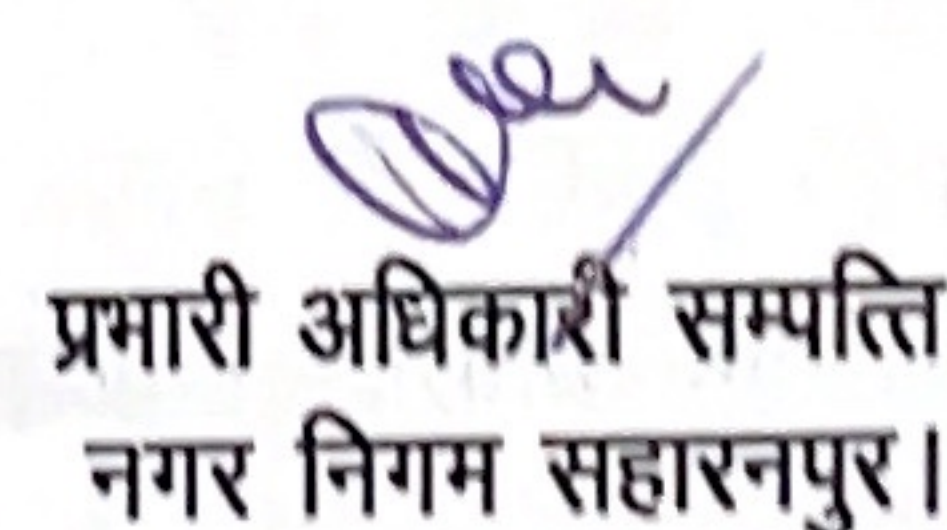 प्रभारी अधिकारी सम्पत्ति
नगर निगम सहारनपुर।